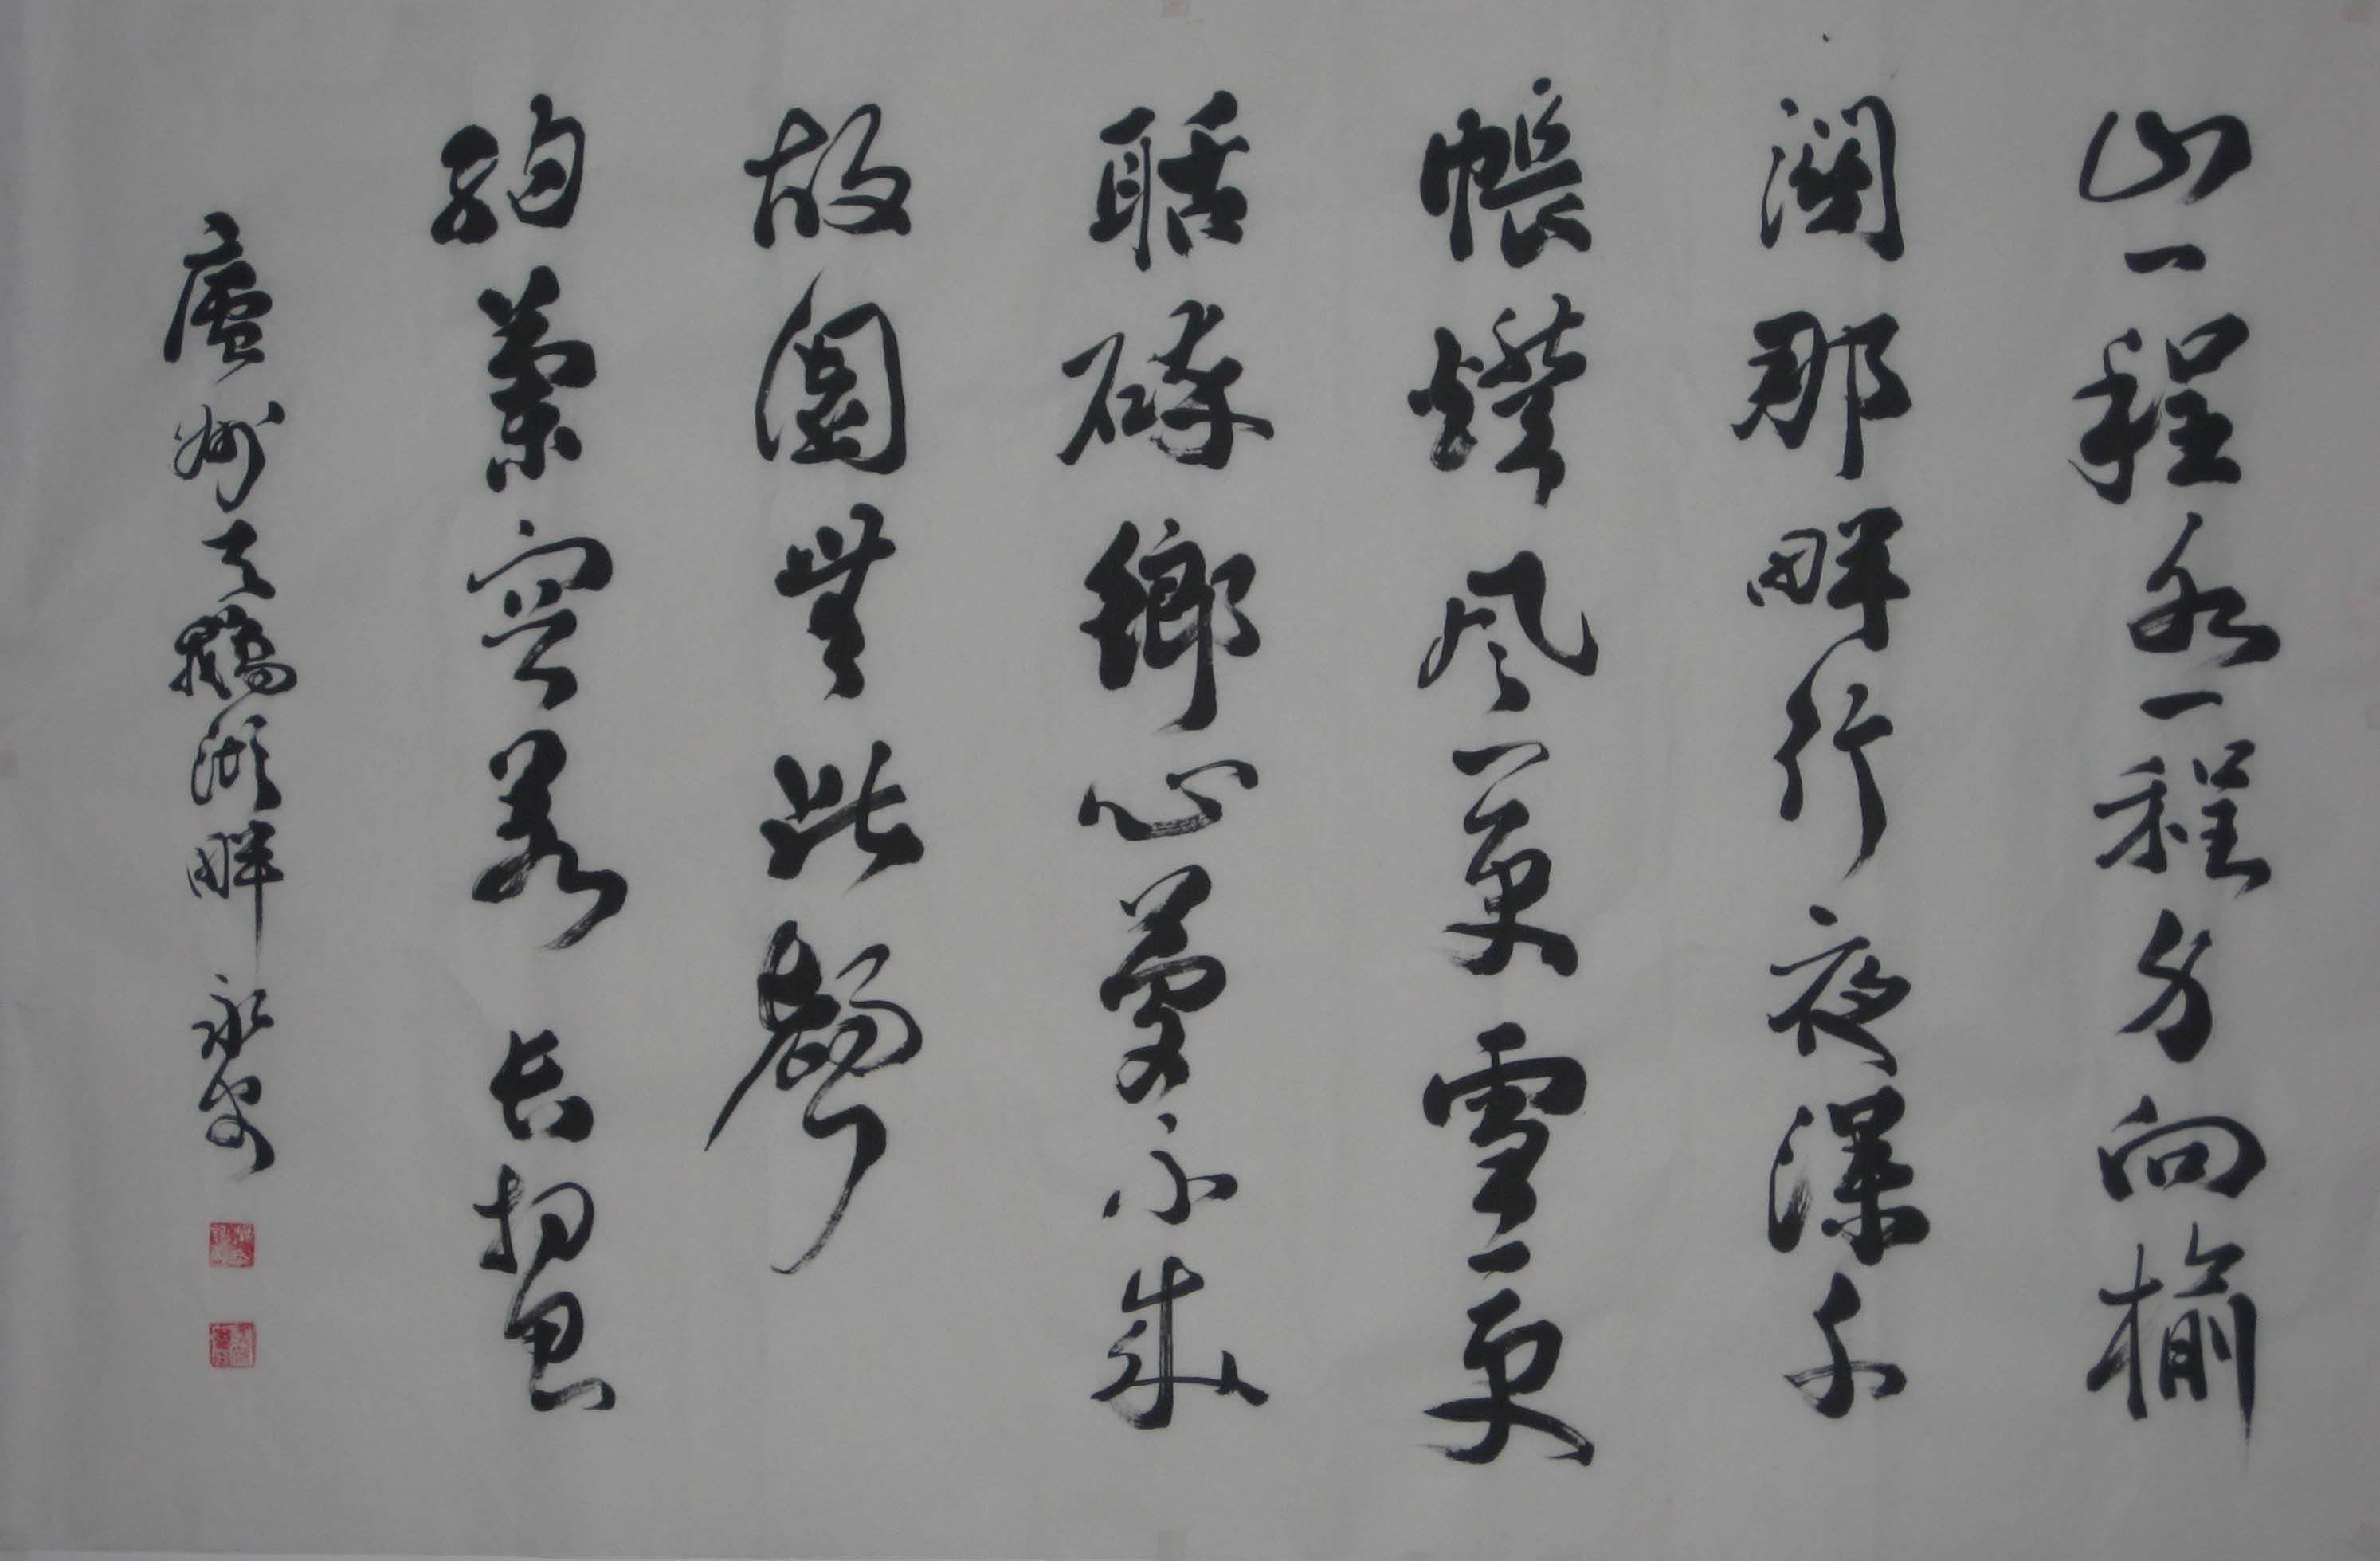 山一程水一程身向榆
關那畔行夜深千
帳燈風一更雪一更
聒碎鄉心夢不成
故園無此聲
納蘭容若 長相思
廬州天鵝湖畔 永